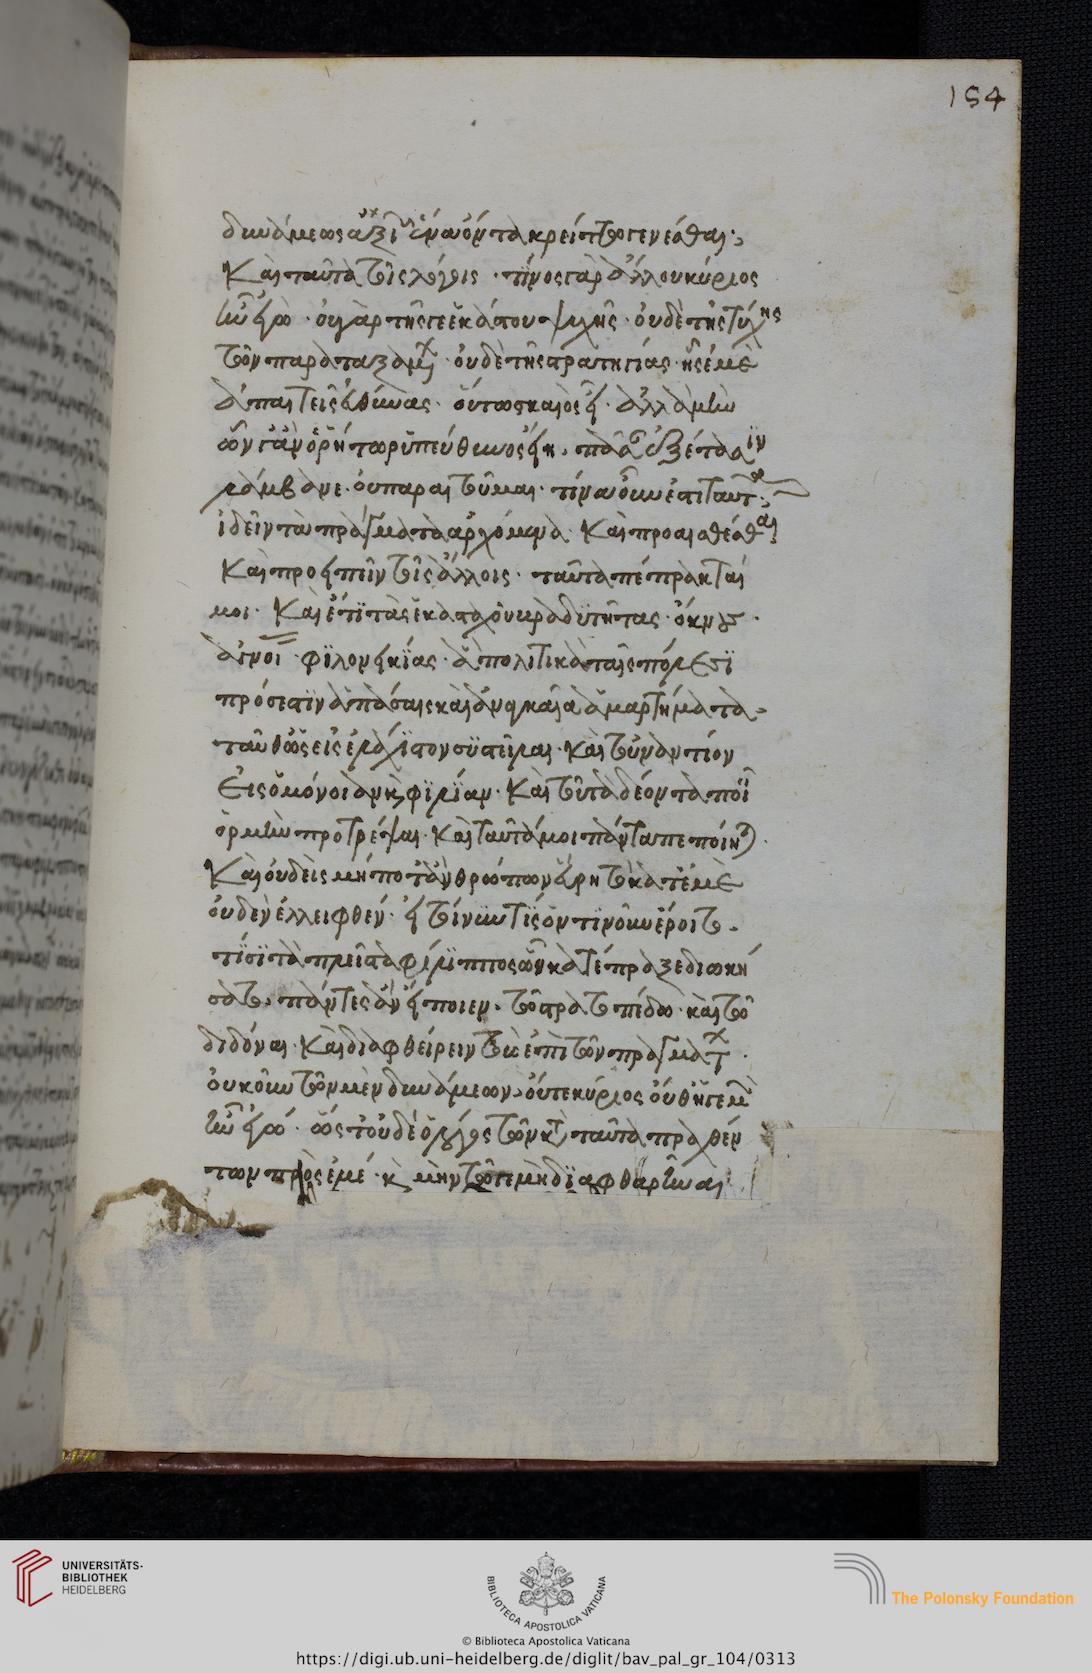 154
δυνάμεως ἀξιοῖς ἕνα ὄντα κρείττω γενέσθαι·
Καὶ ταῦτα τοῖς λόγοις· τίνος γὰρ ἄλλου κύριος
ἦν ἐγώ· οὐ γὰρ τῆς γε ἑκάστου ψυχῆς· οὐδὲ τῆς τύχης
τῶν παραταξαμένων· οὐδὲ τῆς στρατηγίας· ἧς ἐμὲ
ἀπαιτεῖς εὐθύνας· οὕτω σκαιὸς εἶ· ἀλλὰ μὴν
ὧν γ' ἂν ὁ ῥήτωρ ὑπεύθυνος εἴη· πᾶσαν ἐξέτασιν
λάμβανε· οὐ παραιτοῦμαι· τίνα οὖν ἐστι ταῦτα·
ἰδεῖν τὰ πράγματα ἀρχόμενα· Καὶ προαισθέσθαι
Καὶ προειπεῖν τοῖς ἄλλοις· ταῦτα πέπρακταί
μοι· Καὶ ἔτι τὰς ἑκασταχοῦ βραδυτῆτας· ὄκνους·
ἀγνοίας· φιλονεικίας· ἃ πολιτικὰ ταῖς πόλεσι
πρόσεστιν ἁπάσαις καὶ ἀναγκαῖα ἁμαρτήματα·
ταῦθ' ὡς εἰς ἐλάχιστον συστεῖλαι· καὶ τοὐναντίον
Εἰς ὁμόνοιαν καὶ φιλίαν· Καὶ τοῦ τὰ δέοντα ποιεῖν
ὁρμὴν προτρέψαι· Καὶ ταῦτά μοι πάντα πεποίηται·
Καὶ οὐδεὶς μήποτ' ἀνθρώπων εὕρῃ τὸ κατ' ἐμὲ
οὐδὲν ἐλλειφθέν· εἰ τοίνυν τις ὁντινοῦν ἔροιτο·
τίσι τὰ πλεῖστα φίλιππος ὧν κατέπραξε διῳκή
σατο· πάντες ἂν εἴποιεν· τῷ στρατοπέδῳ· καὶ τῷ
διδόναι· Καὶ διαφθείρειν τοὺς ἐπὶ τῶν πραγμάτων·
οὐκοῦν τῶν μὲν δυνάμεων, οὔτε κύριος οὔθ' ἡγεμὼν
ἦν ἐγώ· ὥστ' οὐδὲ ὁ λόγος τῶν κατὰ ταῦτα πραχθέν
των πρὸς ἐμέ· καὶ μὴν τῷ γε μὴ διαφθαρῆναι
UNIVERSITÄTS-
BIBLIOTHEK
HEIDELBERG
BIBLIOTECA APOSTOLICA VATICANA
The Polonsky Foundation
© Biblioteca Apostolica Vaticana
https://digi.ub.uni-heidelberg.de/diglit/bav_pal_gr_104/0313